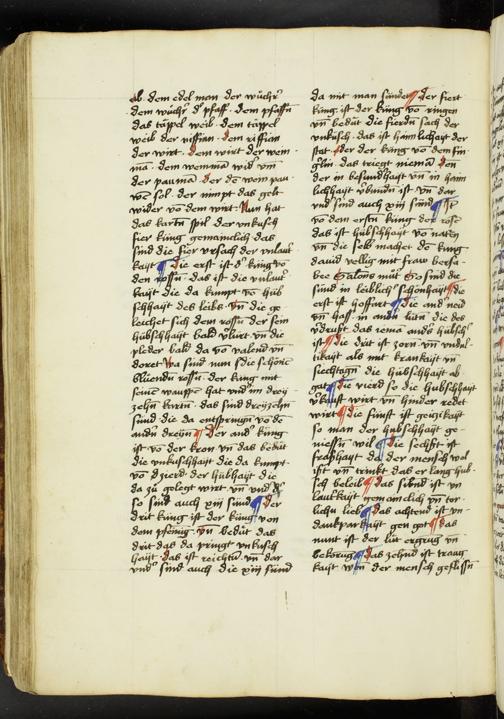 ab dem edel man der wůchr̄
dem wůchr̄ d̄ pfaff · dem pfaffn̄
das täppel weib · dem täppel
weib der riffian · dem riffian
der wirt · dem wirt der wein
man · dem weinman wid vm̄
der pauman · der dem pau
sol · der nimpt das gelt
wider vō dem wirt · Nun hat
das kartn̄ spil der vnkusch
fier küng gemainlich das
sind die fier vrsach der vnlaut
kayt · die erst ist · d̄ küng vō
den rosn̄ · das ist die vnlaut
kayt die da kumpt vō hüb
schhayt des leibs vn̄ die ge
leichet sich dem rosn̄ der sein
hübschhayt bald vlürt vn̄ die
pleder bald da vō valend vn̄
doret · Wa sind nun die schöne
blüenden rosn̄ · der küng mit
seinē wauppē hat vnd im drey
zehn kartn̄ · das sind dreyzehn
sünd die da entspringn vō de
andn̄ dreyn̄ · der and küng
ist vō der kron vn̄ das bedüt
die vnkuschhayt die da kumpt
vō d zierd · der hübhayt die
da zů gelegt wirt vn̄ vnd d̄
so sind auch xiij sünd · der
drit küng ist der küng von
dem pfenig · vn̄ bedüt das
drit · das da pringt vnkusch
hayt · das ist reichtū vn̄ dar
vnd sind auch die xiij sünd
da mit man sündet · der fiert
küng ist der küng vō ringen
vn̄ bedüt die fierdn̄ sach der
vnkusch · das ist haimlichayt der
stat · der der küng vō den fin
glin das triegt nieman · den
der in besundhayt vn̄ in haim
lichhayt vbundn̄ ist vn̄ dar
vnd sind auch xiij sünd · Ist
vō dem erstn̄ küng der rosē
das ist hübschhayt vō natur
vn̄ die selb machet de küng
david vellig mit fraw bersa
bee Salomōs můt · So sind die
sünd in leiblich schönhayt · die
erst ist hoffart · die and neid
vn̄ hass in andn̄ lütn̄ die des
vdrust das iema ands hübsch
ist · die drit ist zorn vn̄ vndul
tikayt als mit krankayt vn̄
siechtagn̄ die hübschhayt ab
gat · die vierd so die hübschhayt
vkauft wirt vn̄ hinder redet
wirt · die fünft ist geizikayt
so man der hübschhayt ge
niessn̄ wil · die sechst ist
frashayt da der mensch wol
ist vn̄ trinkt das er lang hüb
sch beleib · das sibend ist vn
lautkayt gemainclich vn̄ tor
lichu lieb · das achtend ist vn
dankparkayt gen got · das
nunt ist der lüt ergrug vn̄
bekorug · das zehnd ist traug
kayt wen der mensch geflissn̄